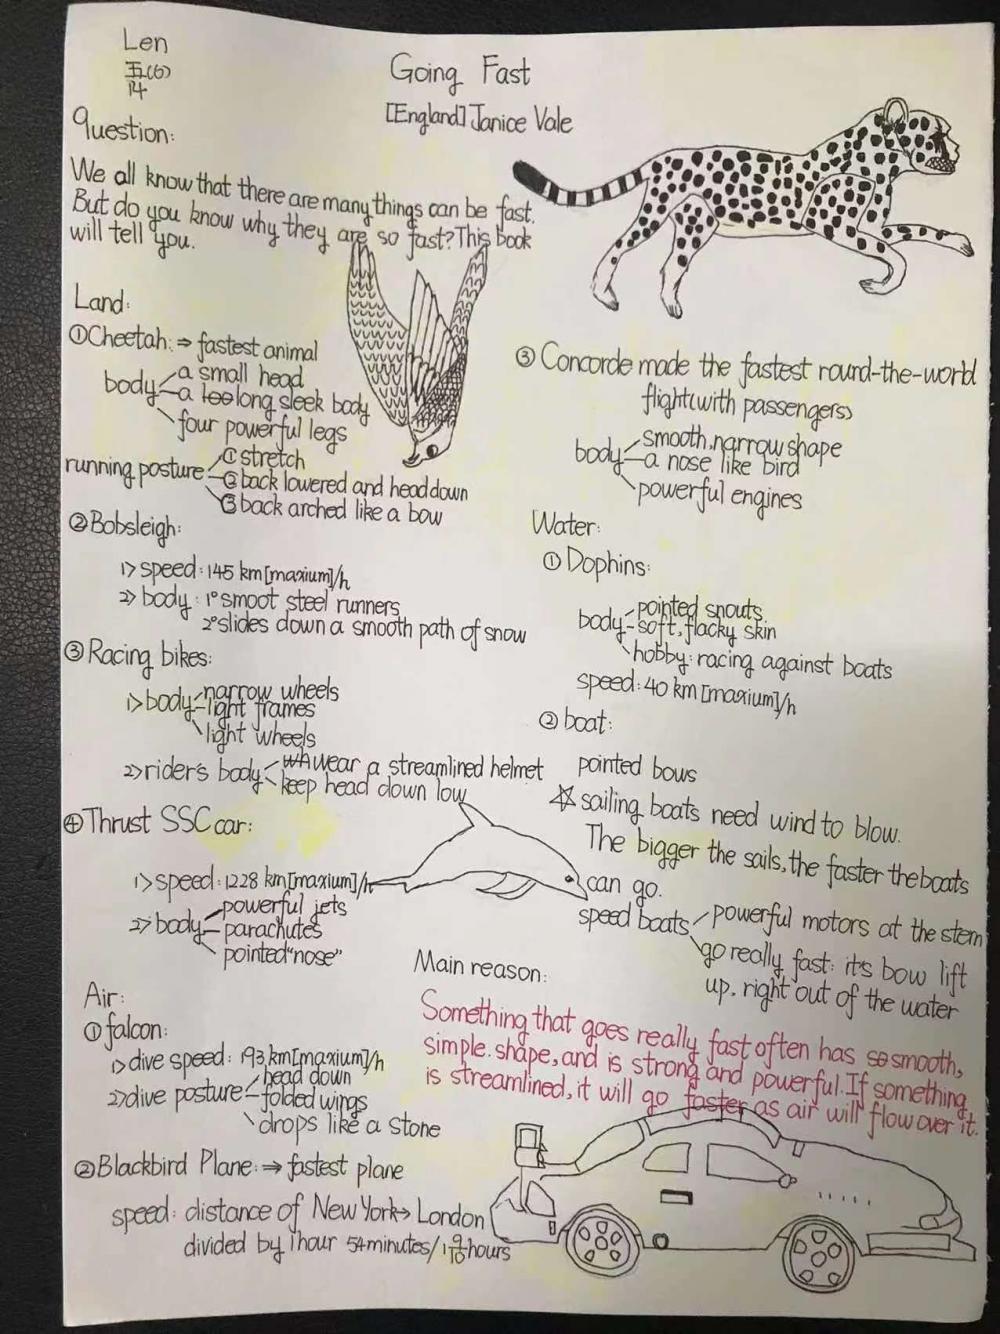 Len
五(6)
14
Going Fast
[England] Janice Vale
Question:
We all know that there are many things can be fast.
But do you know why they are so fast? This book
will tell you.
Land:
①Cheetah: ⇒ fastest animal
body
a small head
a too long sleek body
four powerful legs
running posture
① stretch
② back lowered and head down
③ back arched like a bow
②Bobsleigh:
1> speed: 145 km[maxium]/h
2> body: 1° smoot steel runners
2° slides down a smooth path of snow
③Racing bikes:
1> body
narrow wheels
light frames
light wheels
2> rider's body
wear a streamlined helmet
keep head down low
④Thrust SSC car:
1> speed: 1228 km[maxium]/h
2> body
powerful jets
parachutes
pointed "nose"
Air:
①falcon:
1> dive speed: 193 km[maxium]/h
2> dive posture
head down
folded wings
drops like a stone
②Blackbird Plane: ⇒ fastest plane
speed: distance of New York → London
divided by 1 hour 54 minutes/1 9/10 hours
③ Concorde made the fastest round-the-world
flight(with passengers)
body
smooth, narrow shape
a nose like bird
powerful engines
Water:
① Dophins:
body
pointed snouts
soft, flacky skin
hobby: racing against boats
speed: 40 km[maxium]/h
② boat:
pointed bows
☆ sailing boats need wind to blow.
The bigger the sails, the faster the boats
can go.
speed boats
powerful motors at the stern
go really fast: it's bow lift
up. right out of the water
Main reason:
Something that goes really fast often has so smooth,
simple. shape, and is strong and powerful. If something
is streamlined, it will go faster as air will flow over it.